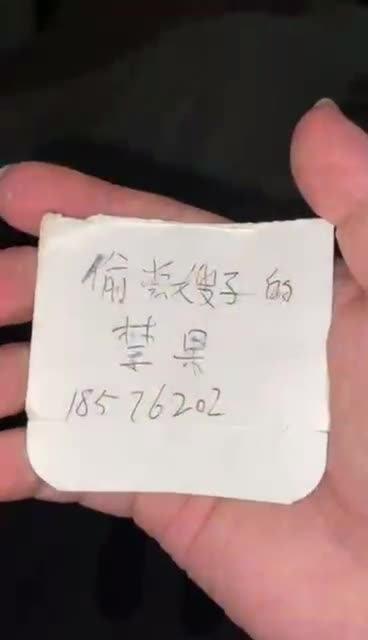 偷尝嫂子的
禁果
18576202